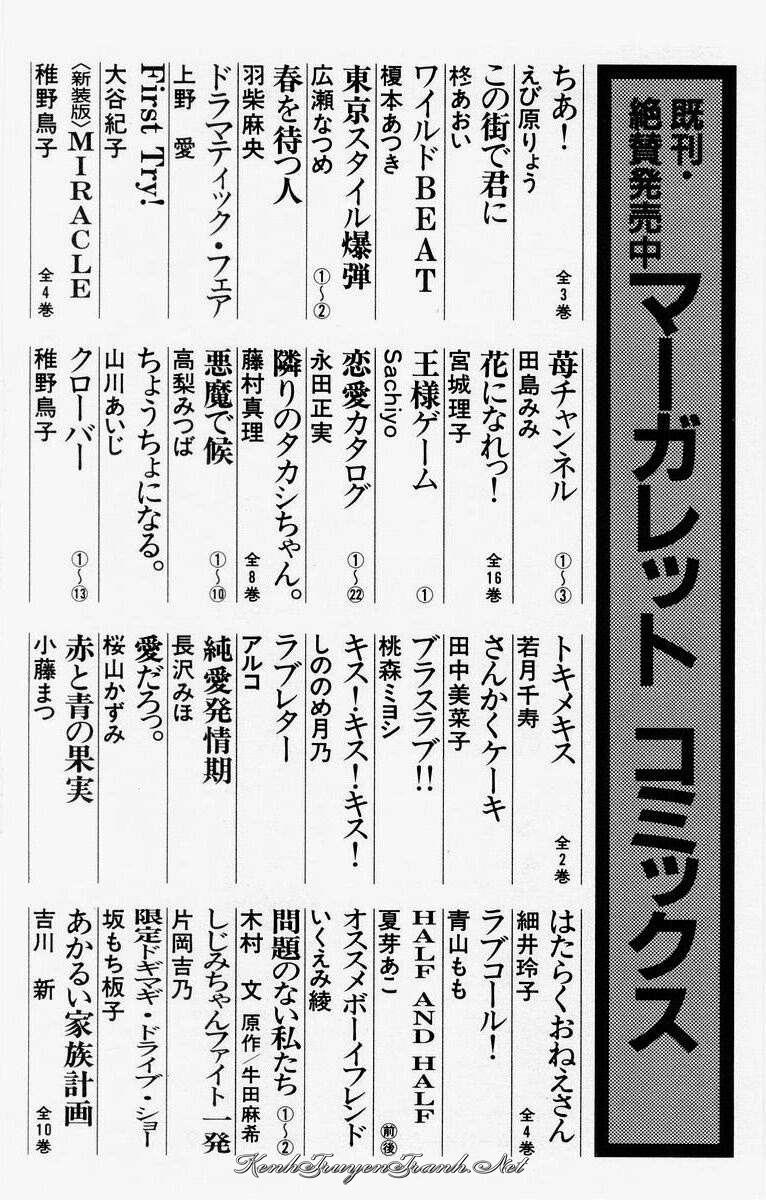 既刊・
絶賛発売中
マーガレット コミックス
ちあ! 全3巻
えび原りょう
この街で君に
柊あおい
ワイルドBEAT
榎本あつき
東京スタイル爆弾 ①〜②
広瀬なつめ
春を待つ人
羽柴麻央
ドラマティック・フェア
上野 愛
First Try!
大谷紀子
〈新装版〉MIRACLE 全4巻
稚野鳥子
苺チャンネル ①〜③
田島みみ
花になれっ! 全16巻
宮城理子
王様ゲーム ①
Sachiyo
恋愛カタログ ①〜㉒
永田正実
隣りのタカシちゃん。 全8巻
藤村真理
悪魔で候 ①〜⑩
高梨みつば
ちょうちょになる。
山川あいじ
クローバー ①〜⑬
稚野鳥子
トキメキス 全2巻
若月千寿
さんかくケーキ
田中美菜子
ブラスラブ!!
桃森ミヨシ
キス!キス!キス!
しののめ月乃
ラブレター
アルコ
純愛発情期
長沢みほ
愛だろっ。
桜山かずみ
赤と青の果実
小藤まつ
はたらくおねえさん 全4巻
細井玲子
ラブコール!
青山もも
HALF AND HALF 前後
夏芽あこ
オススメボーイフレンド
いくえみ綾
問題のない私たち ①〜②
木村 文 原作/牛田麻希
しじみちゃんファイト一発
片岡吉乃
限定ドギマギ・ドライブ・ショー
坂もち板子
あかるい家族計画 全10巻
吉川 新
KenhTruyenTranh.Net